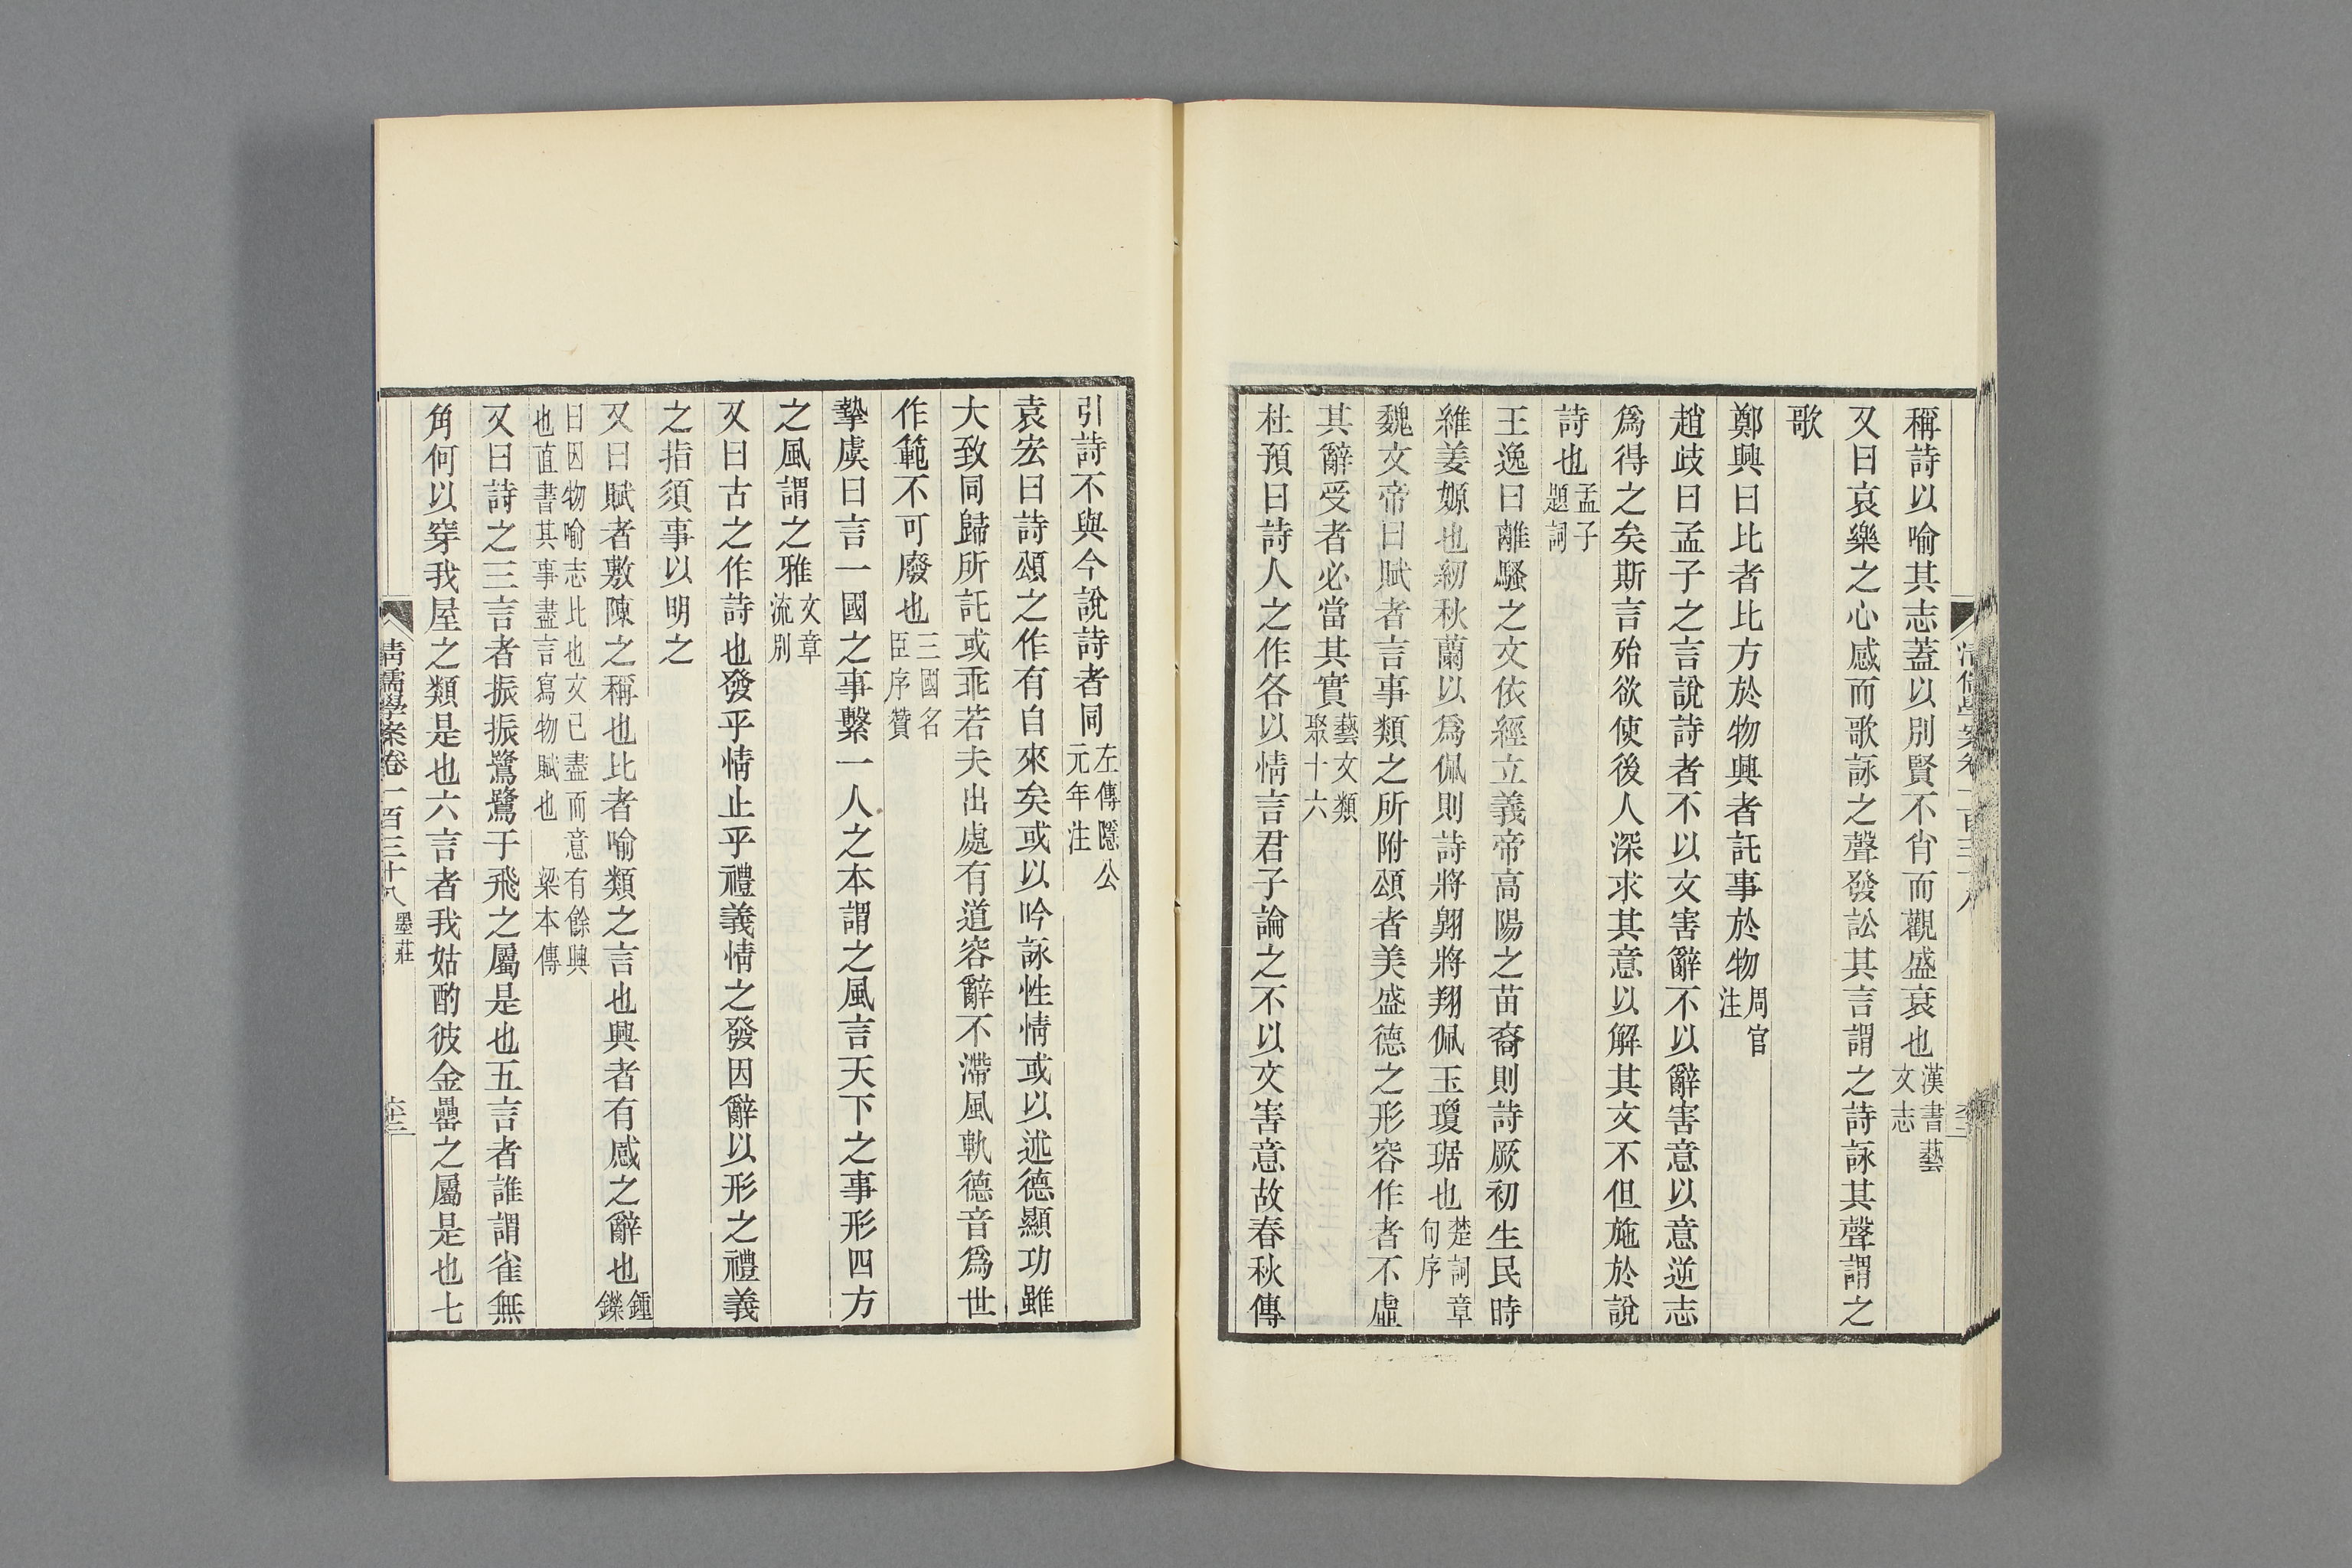 稱詩以喻其志蓋以別賢不肖而觀盛衰也漢書藝文志
又曰哀樂之心感而歌詠之聲發訟其言謂之詩詠其聲謂之
歌
鄭興曰比者比方於物興者託事於物周官注
趙歧曰孟子之言說詩者不以文害辭不以辭害意以意逆志
爲得之矣斯言殆欲使後人深求其意以解其文不但施於說
詩也孟子題詞
王逸曰離騷之文依經立義帝高陽之苗裔則詩厥初生民時
維姜嫄也紉秋蘭以爲佩則詩將翱將翔佩玉瓊琚也楚詞章句序
魏文帝曰賦者言事類之所附頌者美盛德之形容作者不虛
其辭受者必當其實藝文類聚十六
杜預曰詩人之作各以情言君子論之不以文害意故春秋傳
引詩不與今說詩者同左傳隱公元年注
袁宏曰詩頌之作有自來矣或以吟詠性情或以述德顯功雖
大致同歸所託或乖若夫出處有道容辭不滯風軌德音爲世
作範不可廢也三國名臣序贊
摯虞曰言一國之事繫一人之本謂之風言天下之事形四方
之風謂之雅文章流別
又曰古之作詩也發乎情止乎禮義情之發因辭以形之禮義
之指須事以明之
又曰賦者敷陳之稱也比者喻類之言也興者有感之辭也鍾嶸
曰因物喻志比也文已盡而意有餘興也直書其事盡言寫物賦也 梁本傳
又曰詩之三言者振振鷺鷺于飛之屬是也五言者誰謂雀無
角何以穿我屋之類是也六言者我姑酌彼金罍之屬是也七
清儒學案卷一百三十八 墨莊